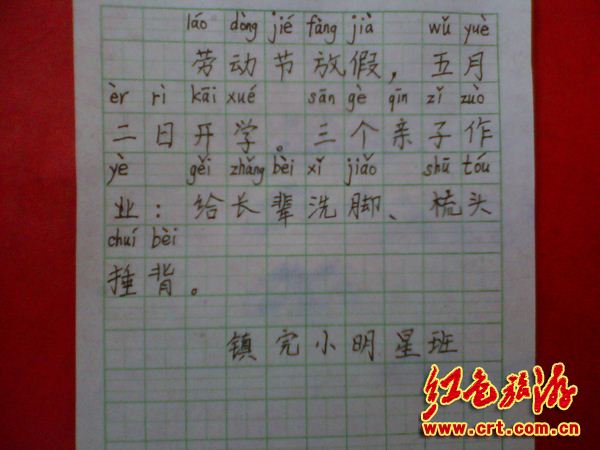 láo dòng jié fàng jià wǔ yuè
劳动节放假，五月
èr rì kāi xué sān gè qīn zǐ zuò
二日开学。三个亲子作
yè gěi zhǎng bèi xǐ jiǎo shū tóu
业：给长辈洗脚、梳头
chuí bèi
捶背。
镇完小明星班
红色旅游
www.crt.com.cn